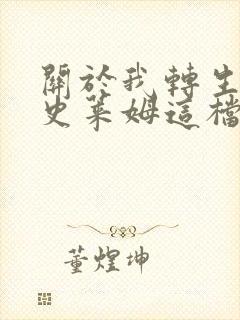 關於我轉生
史萊姆這檔
董煌坤